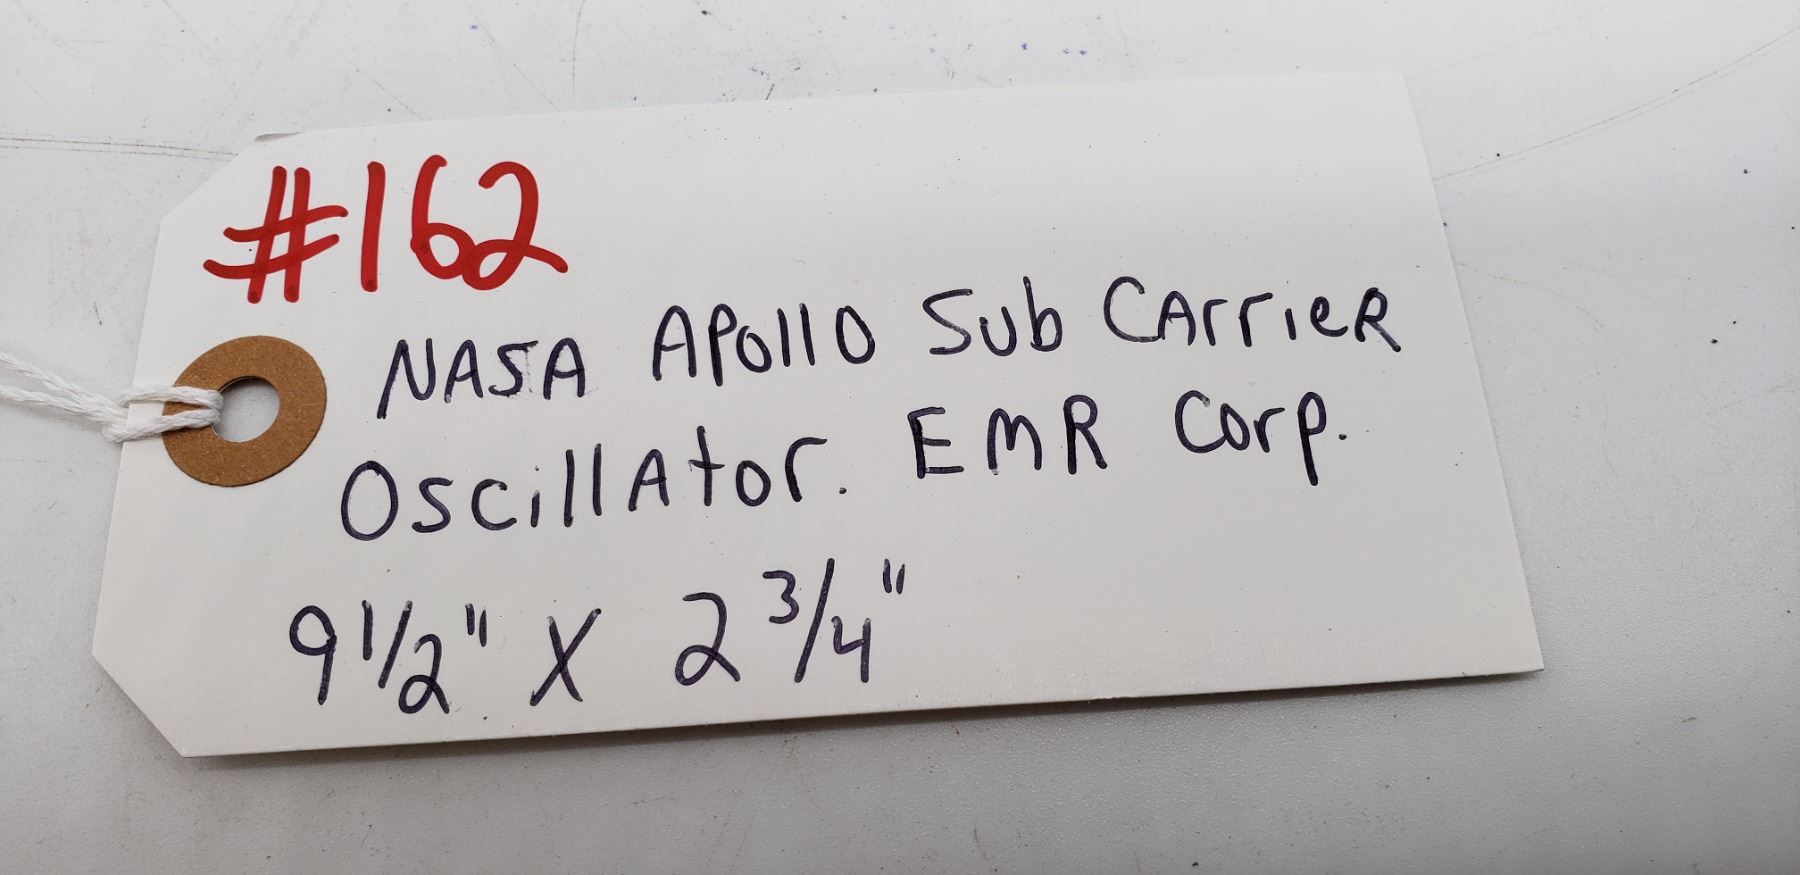 #162
NASA APollO Sub CArrieR
OscillAtor. EMR Corp.
9 1/2" X 2 3/4"